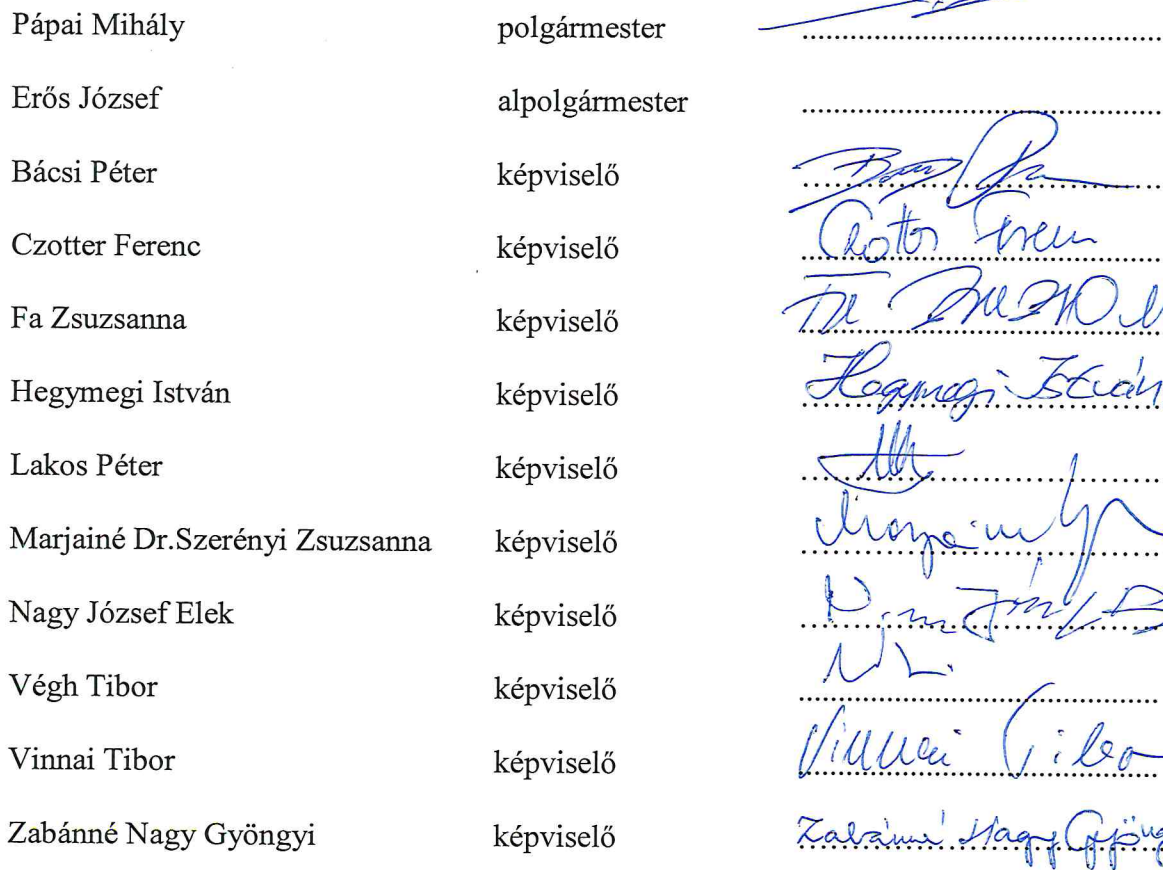 Pápai Mihály polgármester
Erős József alpolgármester
Bácsi Péter képviselő
Czotter Ferenc képviselő Czotter Ferenc
Fa Zsuzsanna képviselő
Hegymegi István képviselő Hegymegi István
Lakos Péter képviselő
Marjainé Dr.Szerényi Zsuzsanna képviselő
Nagy József Elek képviselő
Végh Tibor képviselő
Vinnai Tibor képviselő Vinnai Tibor
Zabánné Nagy Gyöngyi képviselő Zabánné Nagy Gyöng